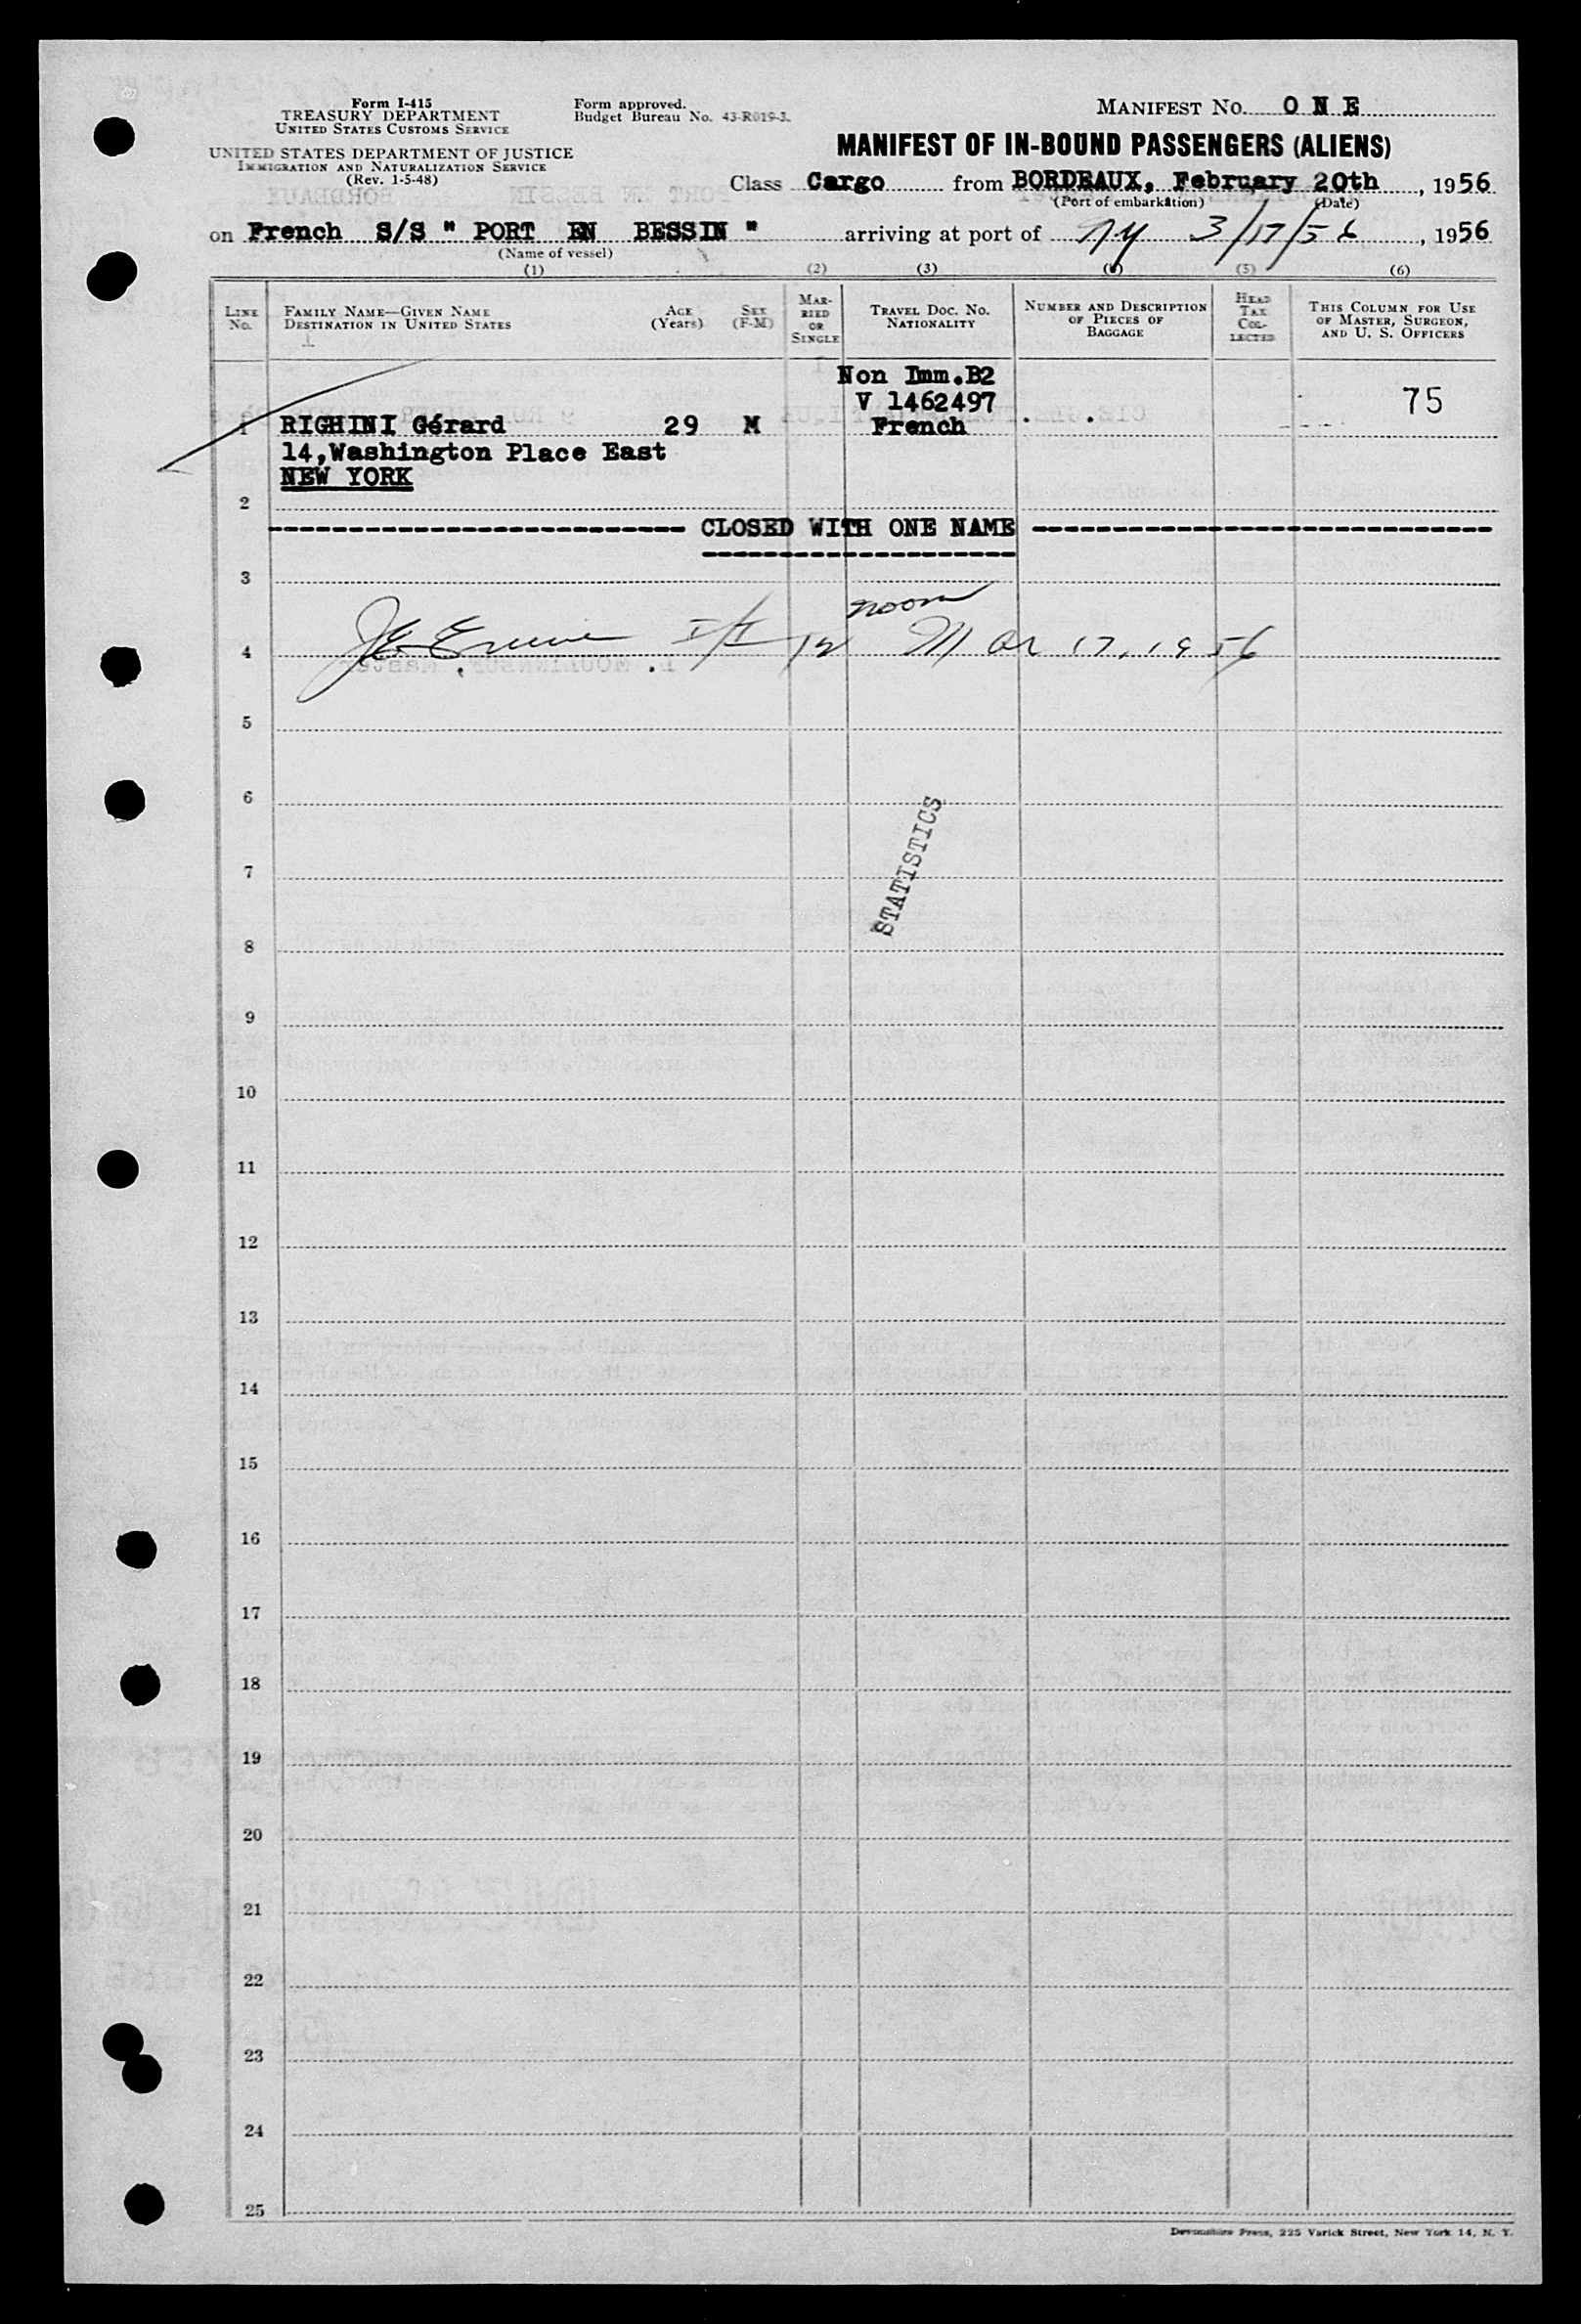 Form I-415
TREASURY DEPARTMENT
UNITED STATES CUSTOMS SERVICE
UNITED STATES DEPARTMENT OF JUSTICE
IMMIGRATION AND NATURALIZATION SERVICE
(Rev. 1-5-48)
Form approved.
Budget Bureau No. 43-R019-3.
MANIFEST NO. O N E
MANIFEST OF IN-BOUND PASSENGERS (ALIENS)
Class Cargo from BORDEAUX, February 20th, 1956
(Port of embarkation) (Date)
on French S/S " PORT EN BESSIN " arriving at port of NY 3/17/56, 1956
(Name of vessel)
(1) (2) (3) (4) (5) (6)
LINE No.
FAMILY NAME—GIVEN NAME
DESTINATION IN UNITED STATES
AGE (Years)
SEX (F-M)
MARRIED OR SINGLE
TRAVEL DOC. NO. NATIONALITY
NUMBER AND DESCRIPTION OF PIECES OF BAGGAGE
HEAD TAX COLLECTED
THIS COLUMN FOR USE OF MASTER, SURGEON, AND U. S. OFFICERS
Non Imm.B2
V 1462497 75
1 RIGHINI Gérard 29 M French
14,Washington Place East
NEW YORK
2
CLOSED WITH ONE NAME
3
noon
4 12 Mar 17, 1956
5
6
STATISTICS
7
8
9
10
11
12
13
14
15
16
17
18
19
20
21
22
23
24
25
Devonshire Press, 225 Varick Street, New York 14, N. Y.